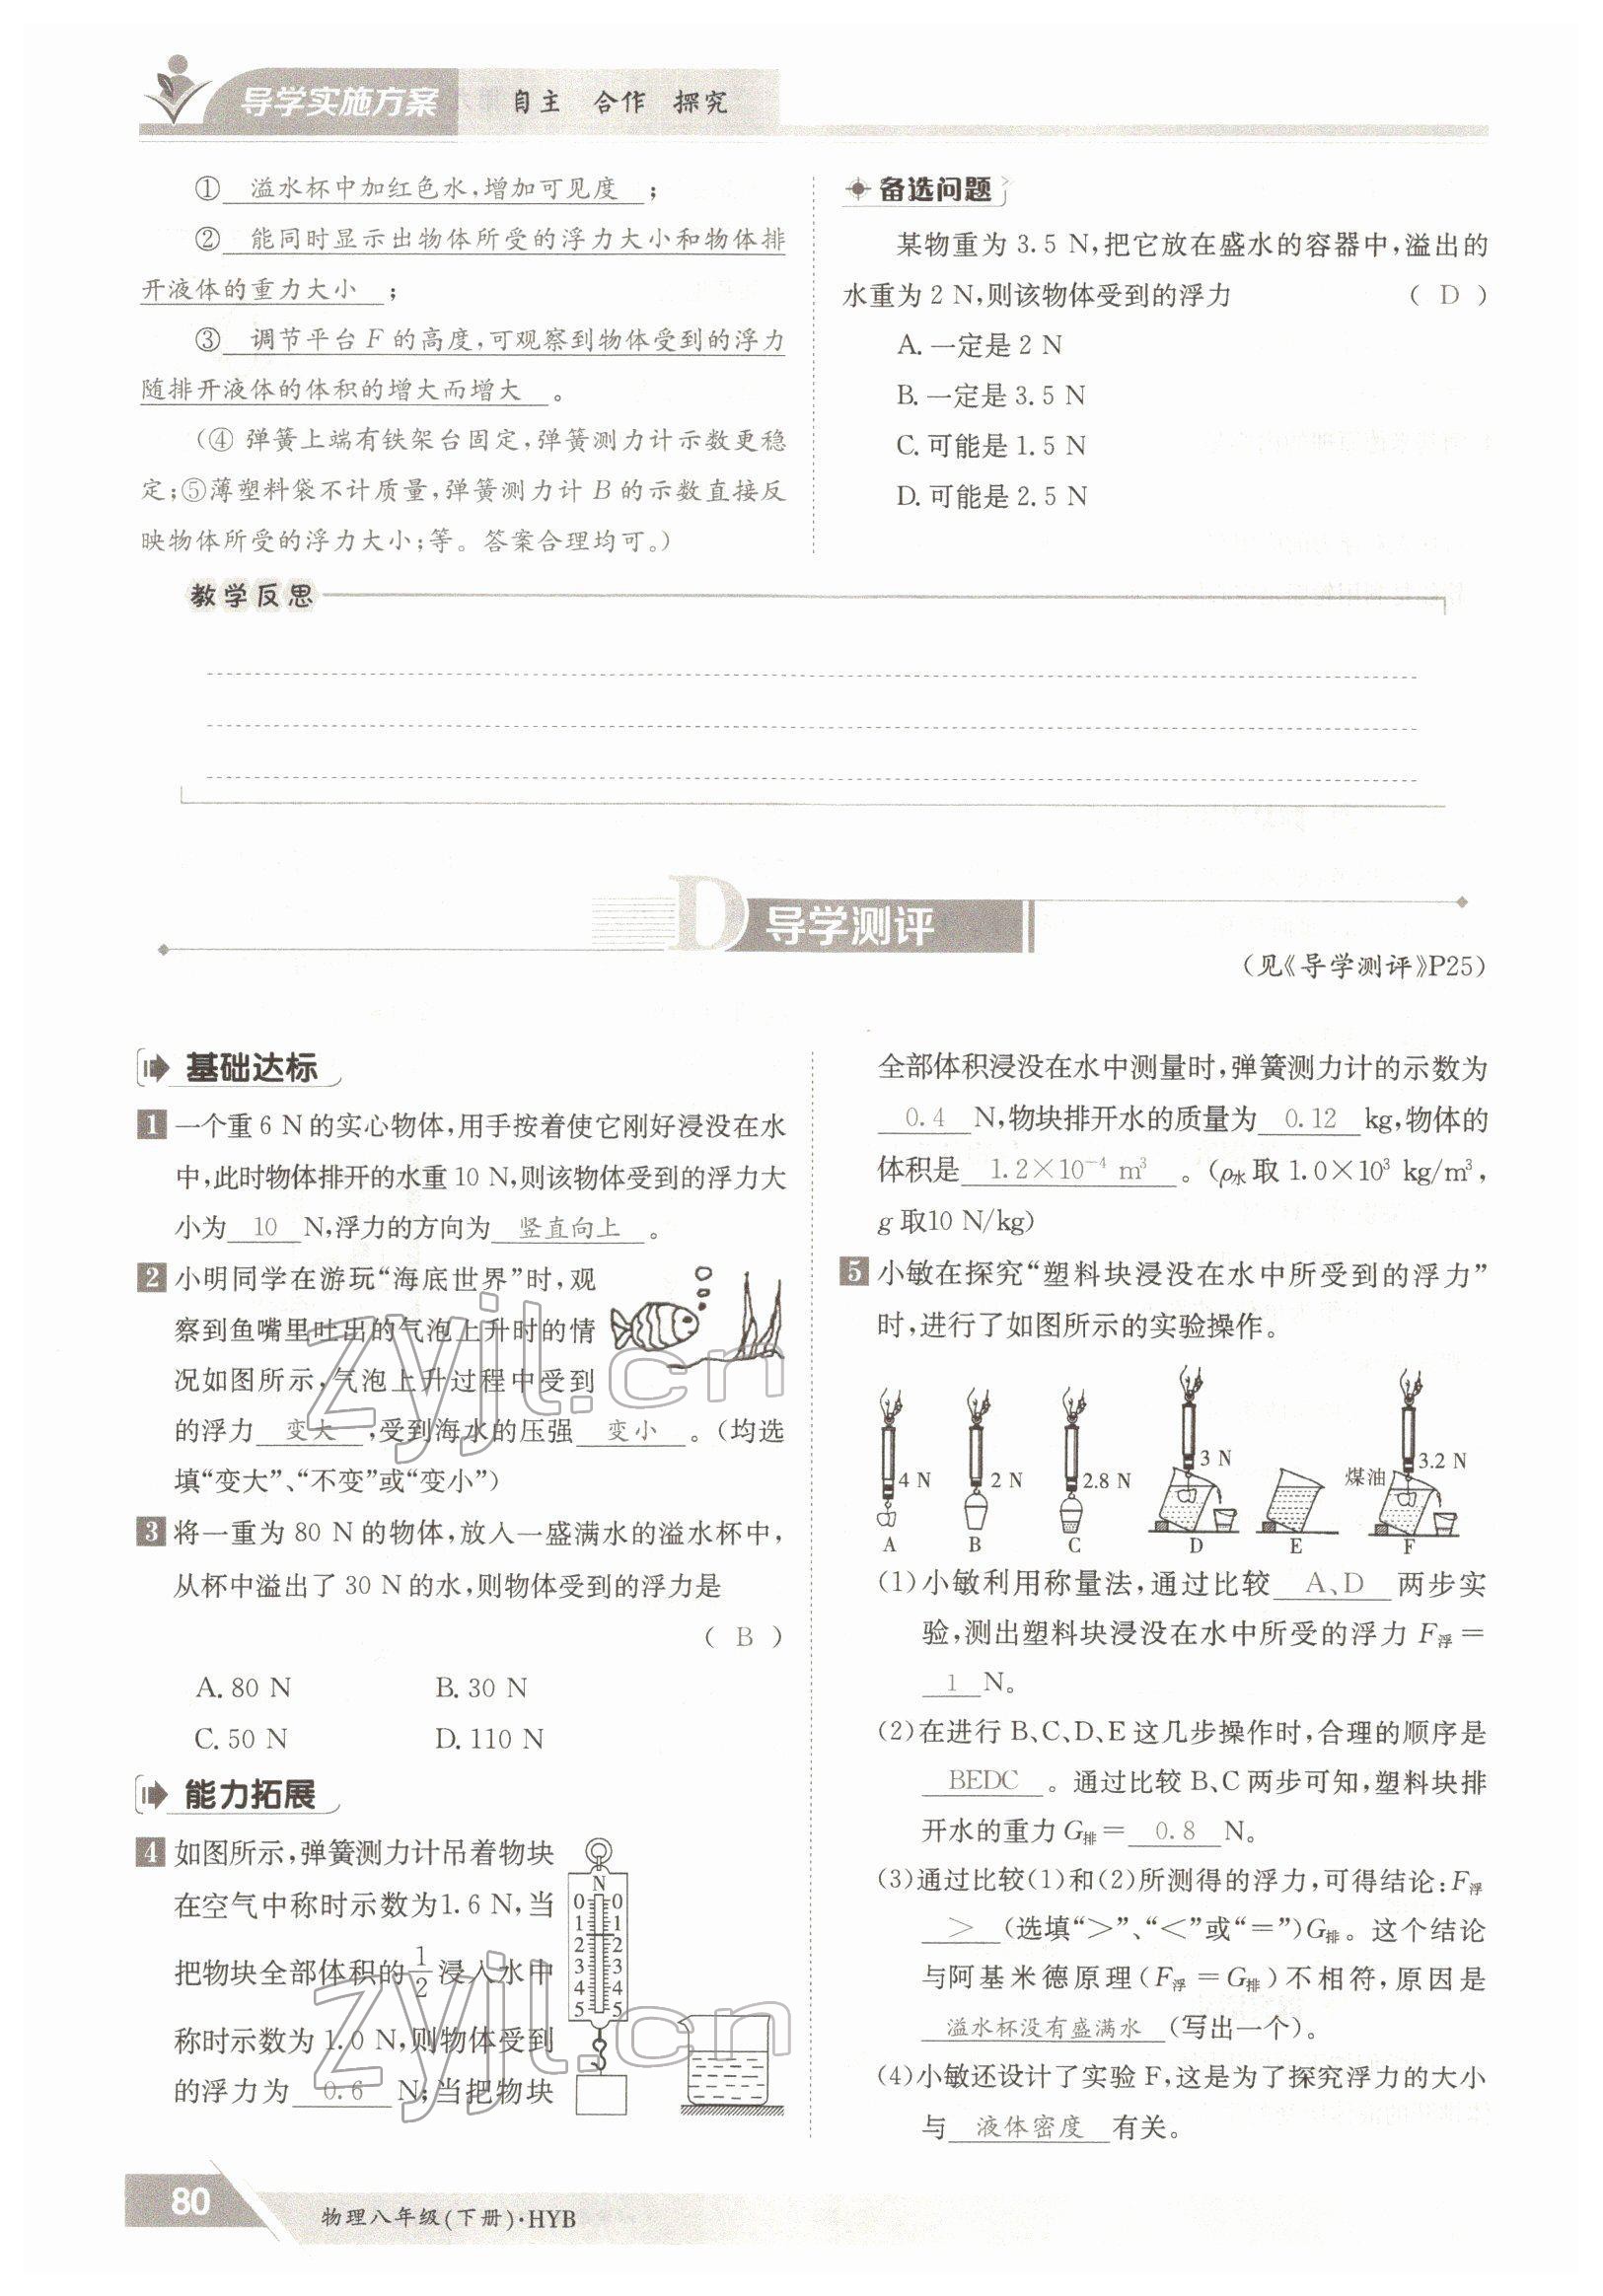 导学实施方案 自主 合作 探究
① 溢水杯中加红色水,增加可见度 ;
② 能同时显示出物体所受的浮力大小和物体排
开液体的重力大小 ;
③ 调节平台 F 的高度,可观察到物体受到的浮力
随排开液体的体积的增大而增大 。
(④ 弹簧上端有铁架台固定,弹簧测力计示数更稳
定;⑤薄塑料袋不计质量,弹簧测力计 B 的示数直接反
映物体所受的浮力大小;等。答案合理均可。)
备选问题
某物重为 3.5 N,把它放在盛水的容器中,溢出的
水重为 2 N,则该物体受到的浮力 ( D )
A. 一定是 2 N
B. 一定是 3.5 N
C. 可能是 1.5 N
D. 可能是 2.5 N
教学反思
D 导学测评
(见《导学测评》P25)
基础达标
1 一个重 6 N 的实心物体,用手按着使它刚好浸没在水
中,此时物体排开的水重 10 N,则该物体受到的浮力大
小为 10 N,浮力的方向为 竖直向上 。
2 小明同学在游玩“海底世界”时,观
察到鱼嘴里吐出的气泡上升时的情
况如图所示,气泡上升过程中受到
的浮力 变大 ,受到海水的压强 变小 。(均选
填“变大”、“不变”或“变小”)
3 将一重为 80 N 的物体,放入一盛满水的溢水杯中,
从杯中溢出了 30 N 的水,则物体受到的浮力是
( B )
A. 80 N B. 30 N
C. 50 N D. 110 N
能力拓展
4 如图所示,弹簧测力计吊着物块
在空气中称时示数为1.6 N,当
把物块全部体积的 1/2 浸入水中
称时示数为 1.0 N,则物体受到
的浮力为 0.6 N;当把物块
N
0 0
1 1
2 2
3 3
4 4
5 5
全部体积浸没在水中测量时,弹簧测力计的示数为
0.4 N,物块排开水的质量为 0.12 kg,物体的
体积是 1.2×10⁻⁴ m³ 。(ρ水 取 1.0×10³ kg/m³,
g 取10 N/kg)
5 小敏在探究“塑料块浸没在水中所受到的浮力”
时,进行了如图所示的实验操作。
4 N 2 N 2.8 N 3 N 煤油 3.2 N
A B C D E F
(1)小敏利用称量法,通过比较 A、D 两步实
验,测出塑料块浸没在水中所受的浮力 F浮 =
1 N。
(2)在进行 B、C、D、E 这几步操作时,合理的顺序是
BEDC 。通过比较 B、C 两步可知,塑料块排
开水的重力 G排 = 0.8 N。
(3)通过比较(1)和(2)所测得的浮力,可得结论:F浮
> (选填“>”、“<”或“=”)G排。这个结论
与阿基米德原理(F浮 = G排)不相符,原因是
溢水杯没有盛满水 (写出一个)。
(4)小敏还设计了实验 F,这是为了探究浮力的大小
与 液体密度 有关。
zyjl.cn
zyjl.cn
80 物理八年级(下册)·HYB